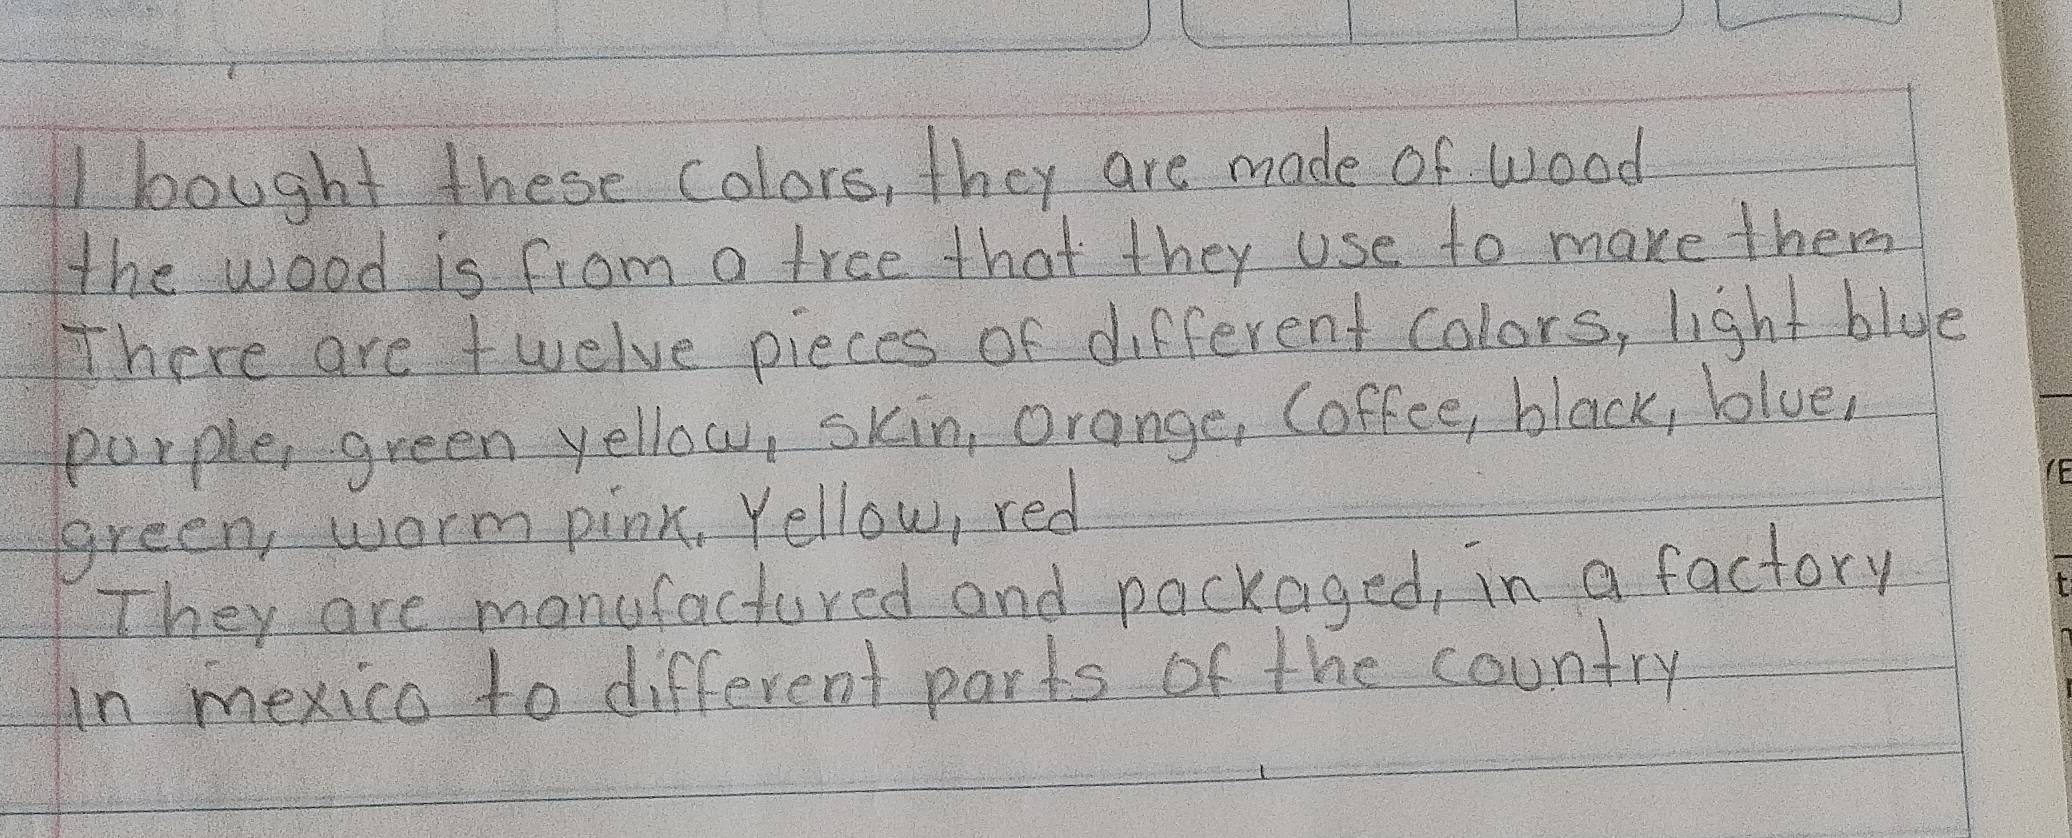 I bought these colors, they are made of wood
the wood is from a tree that they use to make them
There are twelve pieces of different colors, light blue
purple, green yellow, skin, orange, coffee, black, blue,
green, warm pink, Yellow, red
They are manufactured and packaged, in a factory
in mexico to different parts of the country